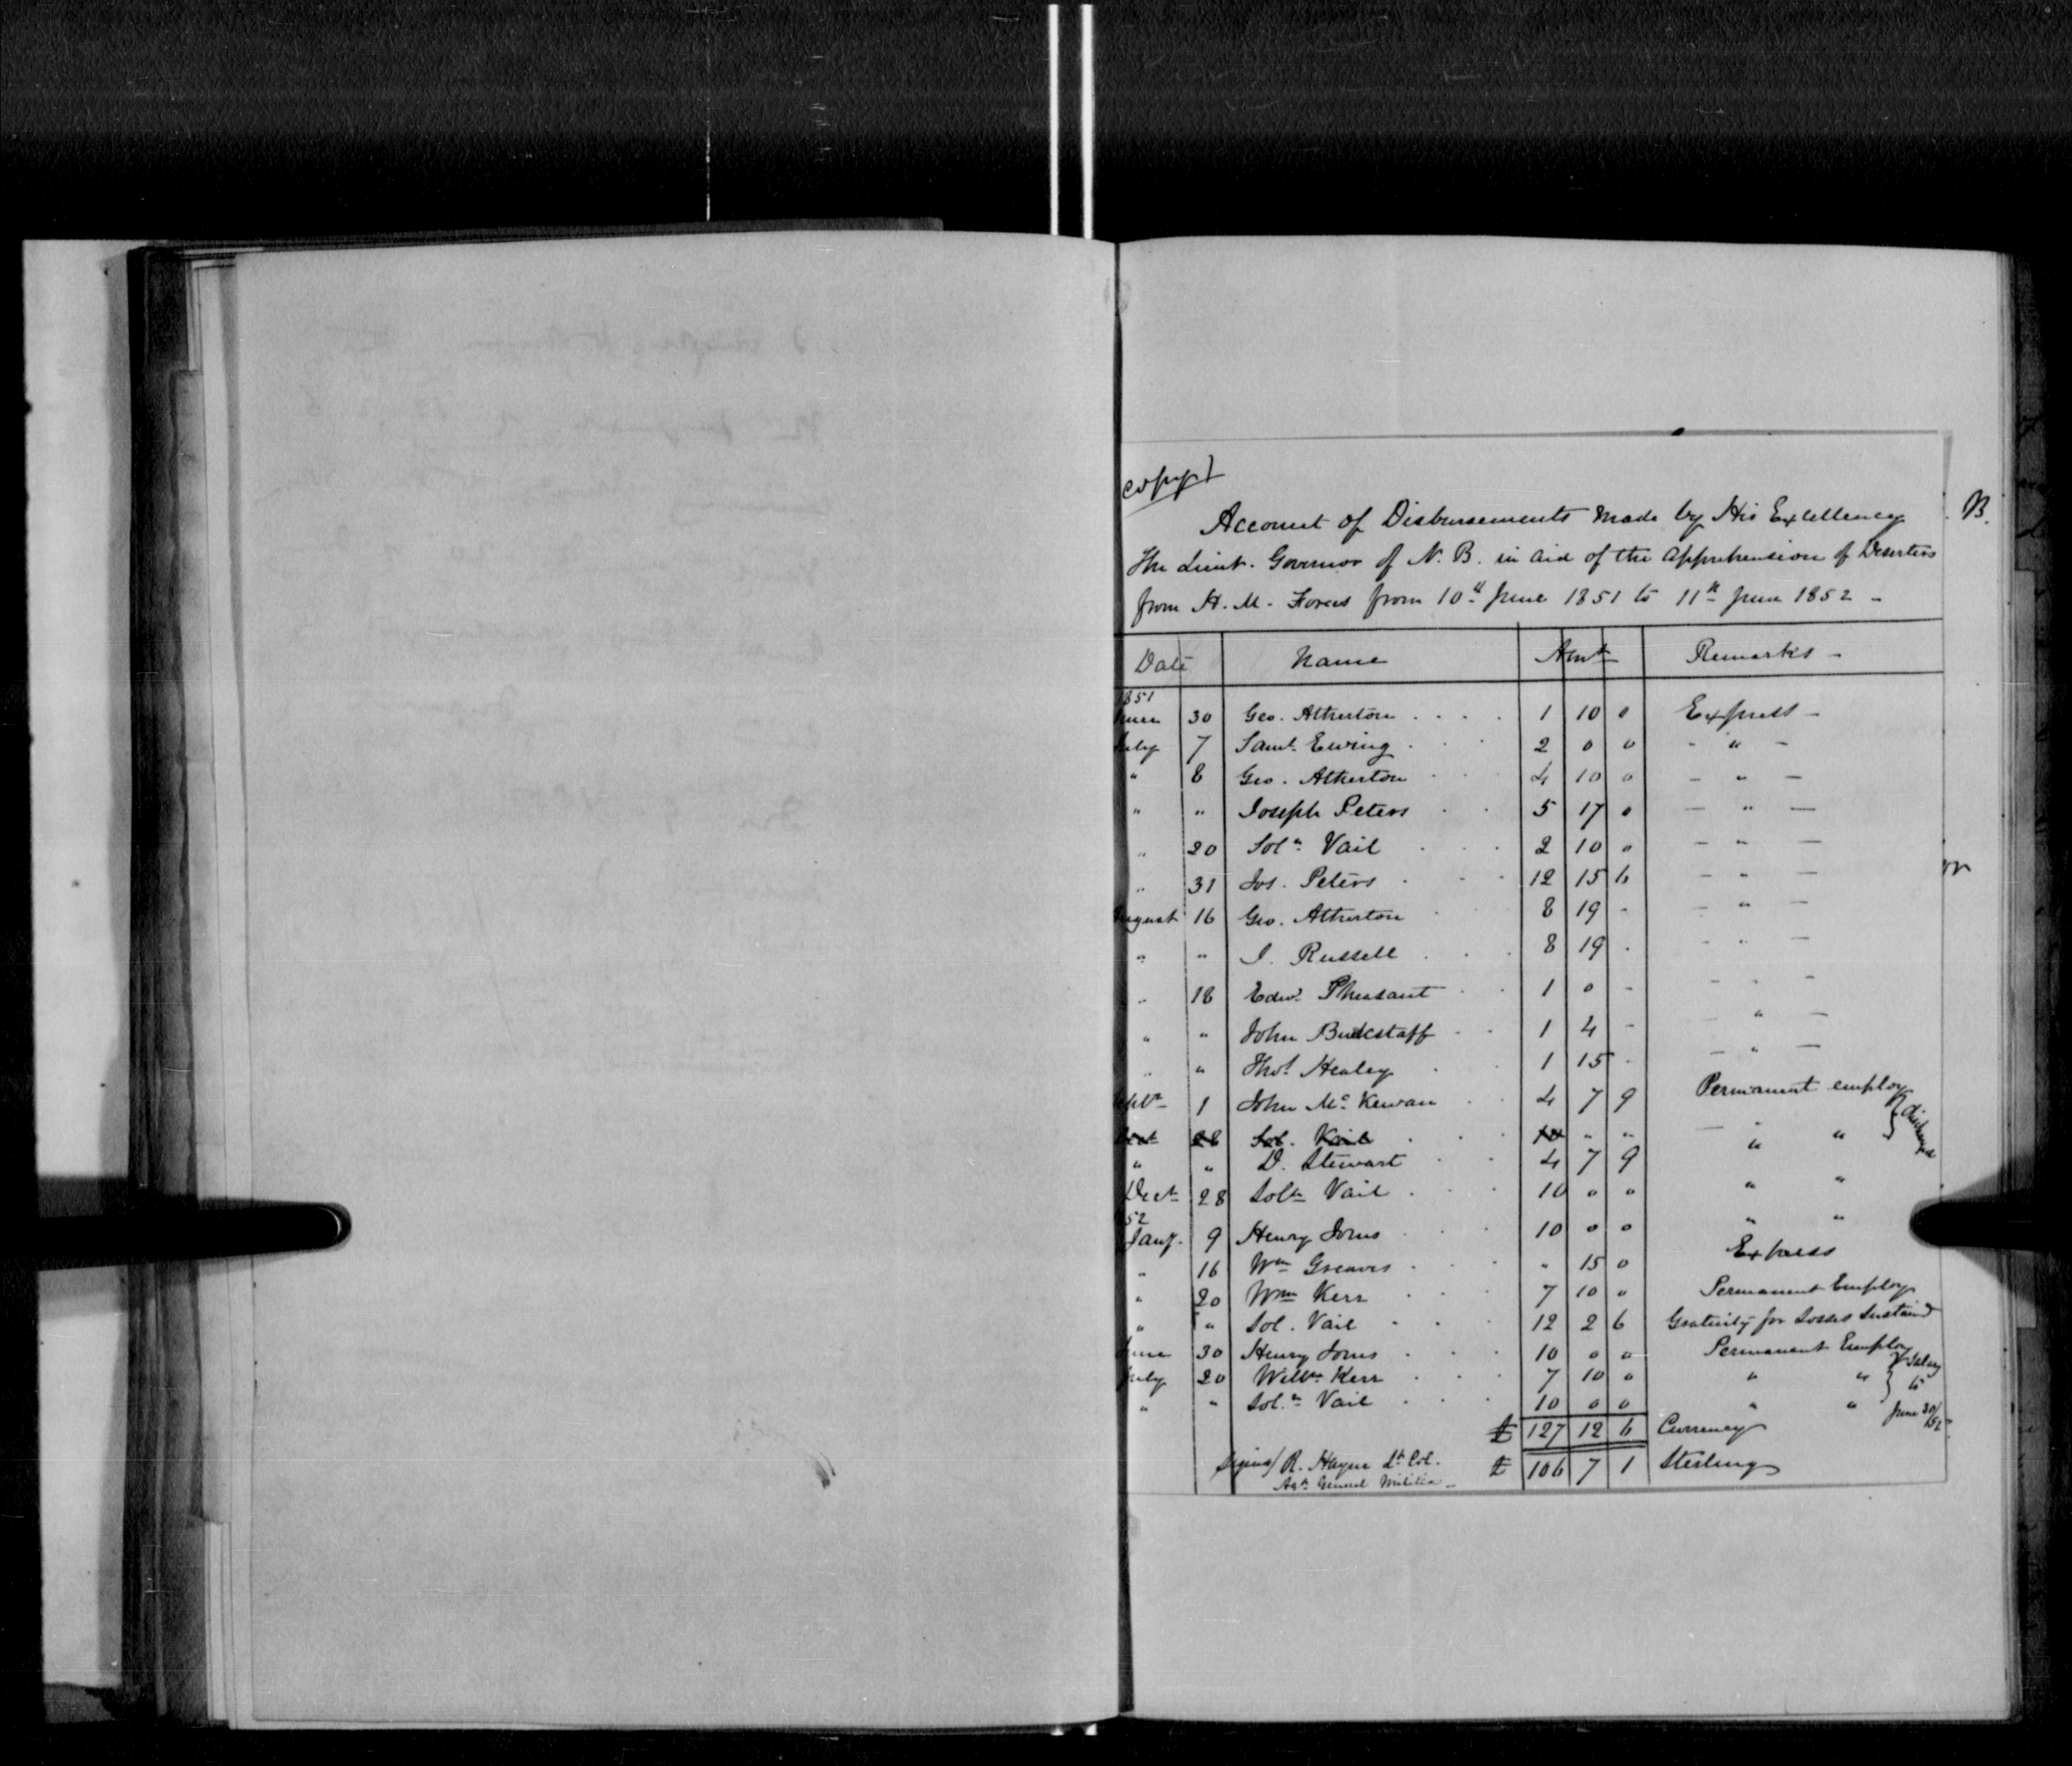 Copy
B.
Account of Disbursements made by His Excellency
The Lieut. Governor of N. B. in aid of the apprehension of Deserters
from H. M. Forces from 10th June 1851 to 11th June 1852 -
Date Name Amt Remarks -
1851
June 30 Geo. Atherton . . . . 1 10 0 Express -
July 7 Saml. Ewing . . . 2 0 0 - " -
" 8 Geo. Atherton . . 4 10 0 - " -
" " Joseph Peters . . 5 17 0 - " -
" 20 Soln. Vail . . . 2 10 0 - " -
" 31 Jos. Peters . . . 12 15 6 - " -
August 16 Geo. Atherton . . 8 19 - - " -
" " J. Russell . . . 8 19 . - " -
" 18 Edwd. Pheasant . . 1 0 - - " -
" " John Buckstaff . . 1 4 - - " -
" " Thos. Healey . 1 15 - - " -
Septr 1 John McKewan . . 4 7 9 Permanent employ
28 Sol. Vail . . . 10 " " - "
" " D. Stewart . . 4 7 9 " " } discharged
Decr 28 Soln Vail . . . 10 0 0 " "
1852
Jany. 9 Henry Jones . . 10 0 0 " "
" 16 Wm Greaves . . . " 15 0 Express
" 20 Wm Kerr . . . 7 10 0 Permanent Employ
" " Sol. Vail . . . . 12 2 6 Gratuity for Losses Sustained
June 30 Henry Jones . . . 10 0 0 Permanent Employ
July 20 Willm Kerr . . . 7 10 0 " " } Salary to
" " Soln. Vail . . . . 10 0 0 " " June 30/52
£ 127 12 6 Currency
Signed/ R. Hayne Lt. Col. £ 106 7 1 Sterling
Agt General Militia -